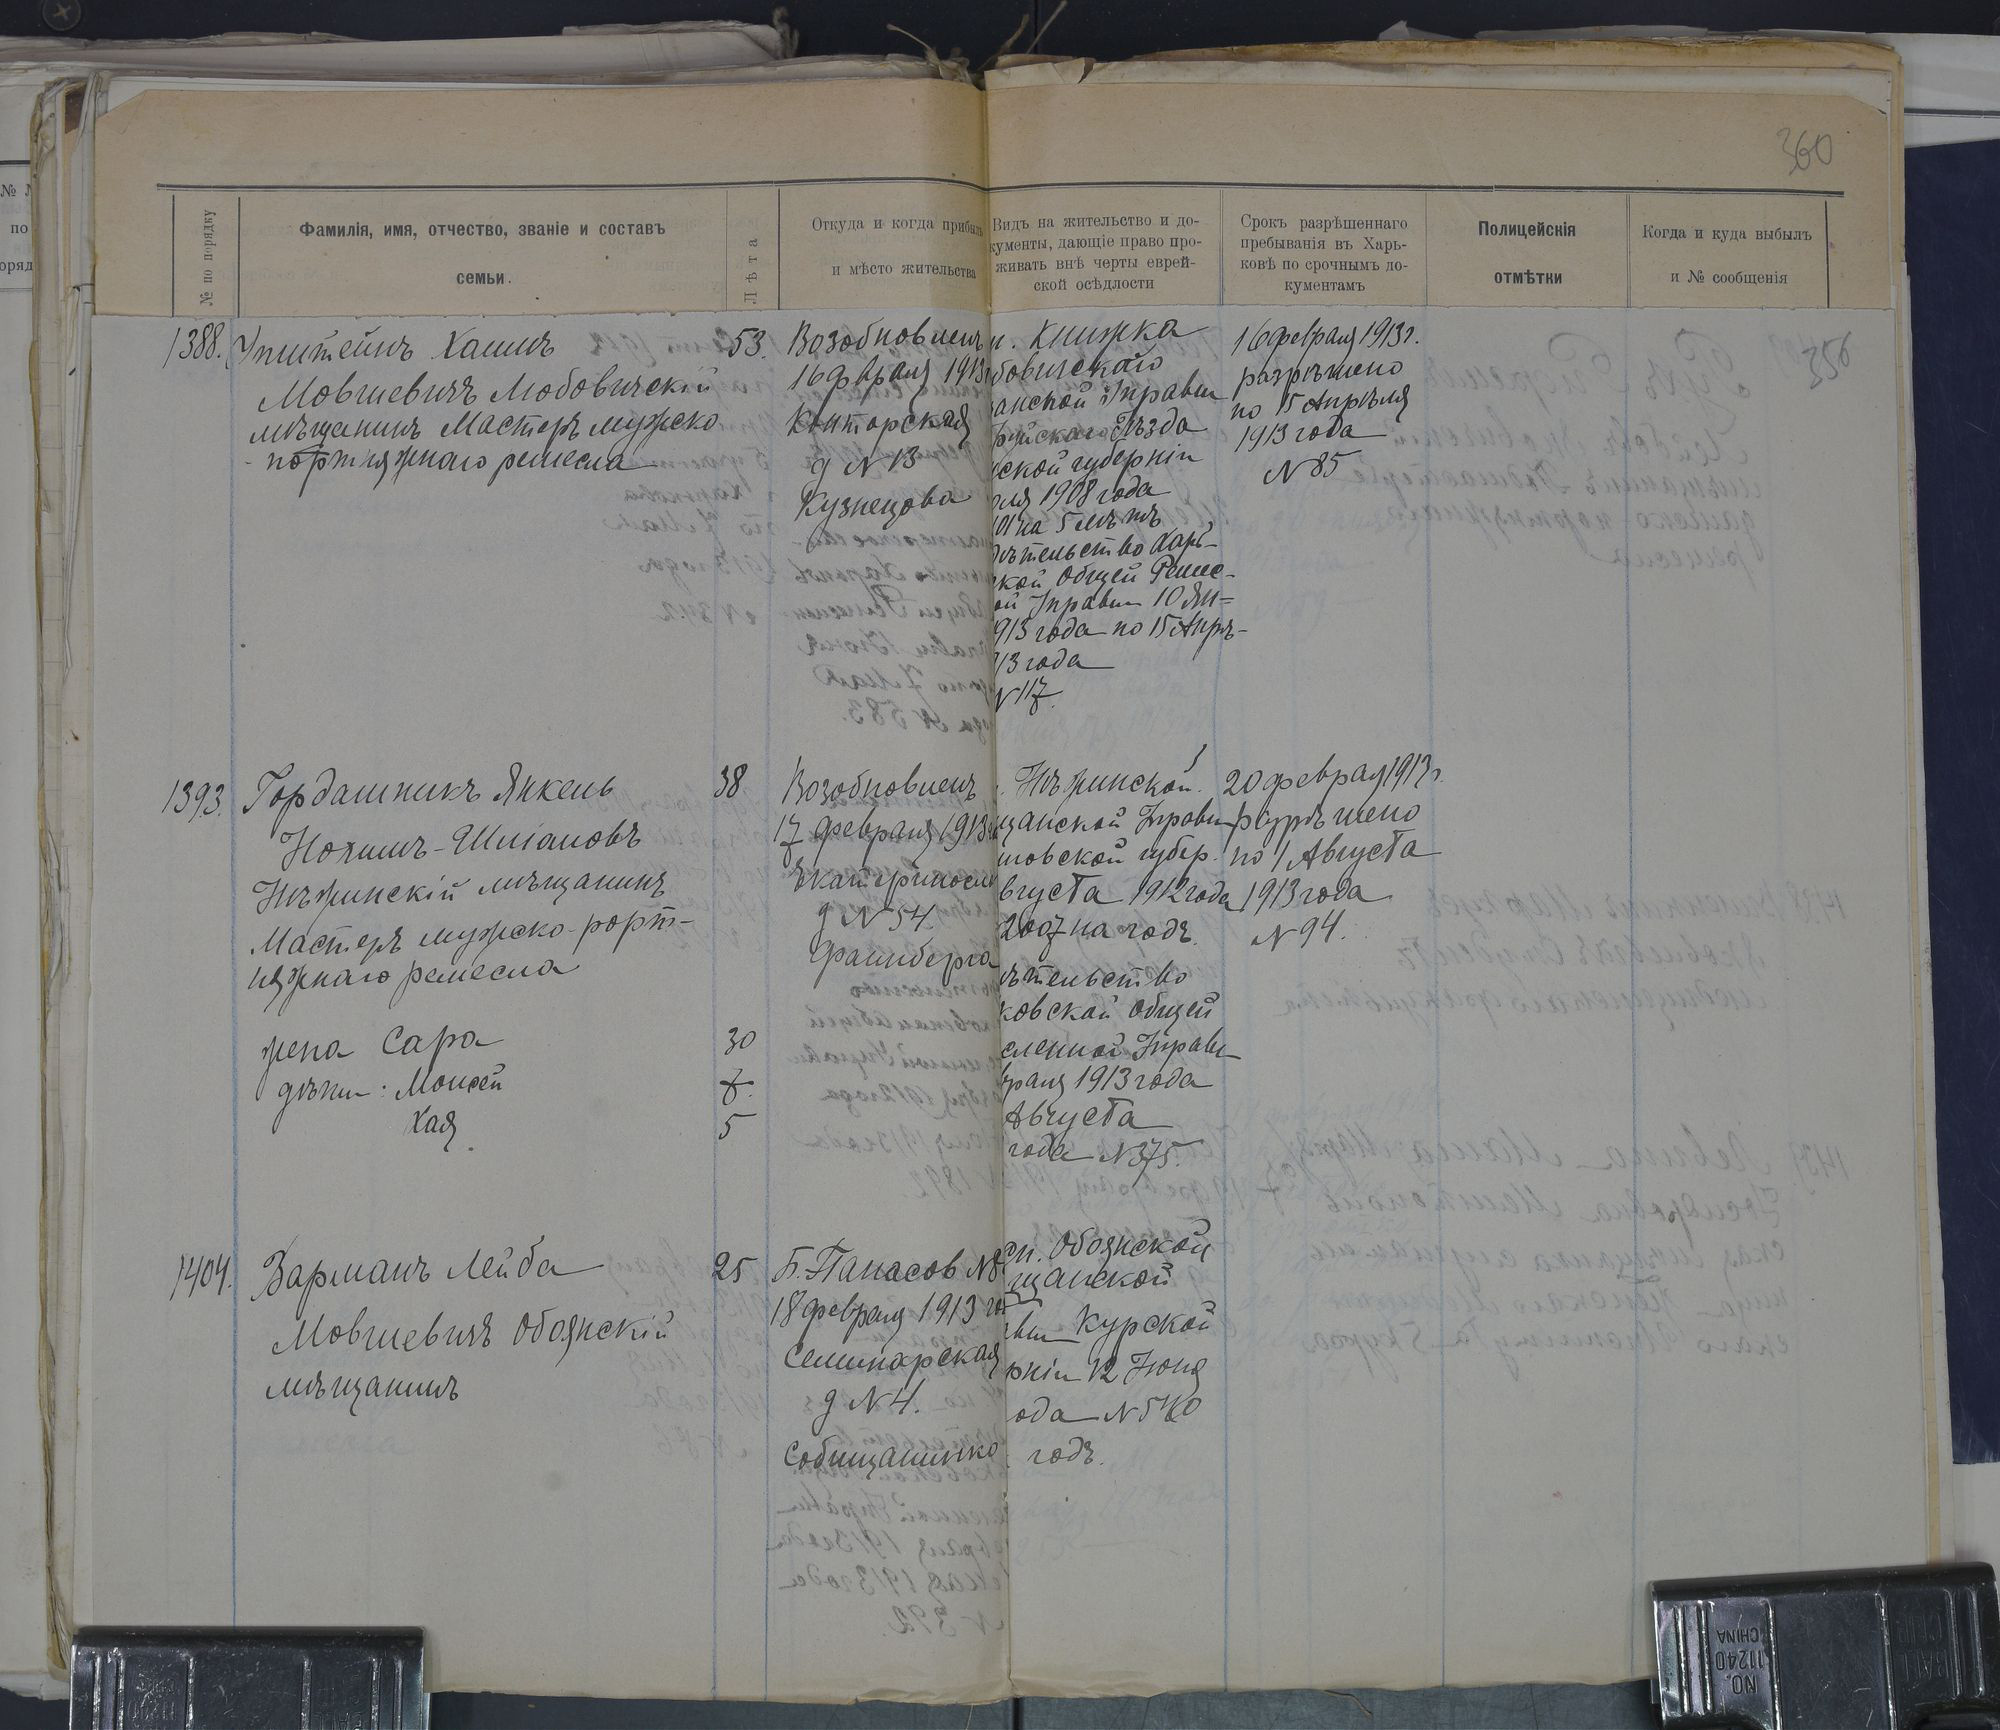 360
№ по порядку
Фамилія, имя, отчество, званіе и составъ
семьи.
Лѣта
Откуда и когда прибылъ
и мѣсто жительства
Видъ на жительство и до-
кументы, дающіе право про-
живать внѣ черты еврей-
ской осѣдлости
Срокъ разрѣшеннаго
пребыванія въ Харь-
ковѣ по срочнымъ до-
кументамъ
Полицейскія
отмѣтки
Когда и куда выбылъ
и № сообщенія
1388.
Хаимъ
Мовшевичъ Любовичскій
мѣщанинъ Мастеръ мужско
портняжнаго ремесла
53.
Возобновленъ
16 февраля 1913
Конторская
д N 13
Кузнецова
п. Книжка
бовичскаго
анской Управы
Уѣзда
ской губерніи
ля 1908 года
на 5 лѣтъ
дѣтельство Харь-
кой Общей Реме-
ой Управы 10 Ян=
913 года по 15 Апрѣ-
13 года
N 117.
16 февраля 1913 г.
разрѣшено
по 15 Апрѣля
1913 года
N 85
356
1393.
Гордашникъ Янкель
Нохимъ-Шліомовъ
Нѣжинскій мѣщанинъ
Мастеръ мужско-порт-
няжнаго ремесла
жена Сара
дѣти: Моисей
Хая
38
30
7.
5
Возобновленъ
17 февраля 1913
Екатериносл
д N 54.
Файнберга
Нѣжинской
щанской Управы
говской губер.
вгуста 1912 года
2007 на годъ.
ѣтельство
ковской Общей
сленной Управы
враля 1913 года
Августа
года N 375.
20 февраля 1913 г.
разрѣшено
по 1 Августа
1913 года
N 94.
1404.
Зарманъ Лейба
Мовшевичъ Обоянскій
мѣщанинъ
25
Б. Панасов N 8
18 февраля 1913 го
Семинарская
д N 4.
сп. Обоянской
щанской
авы Курской
рніи 12 Іюня
ода N 540
годъ.